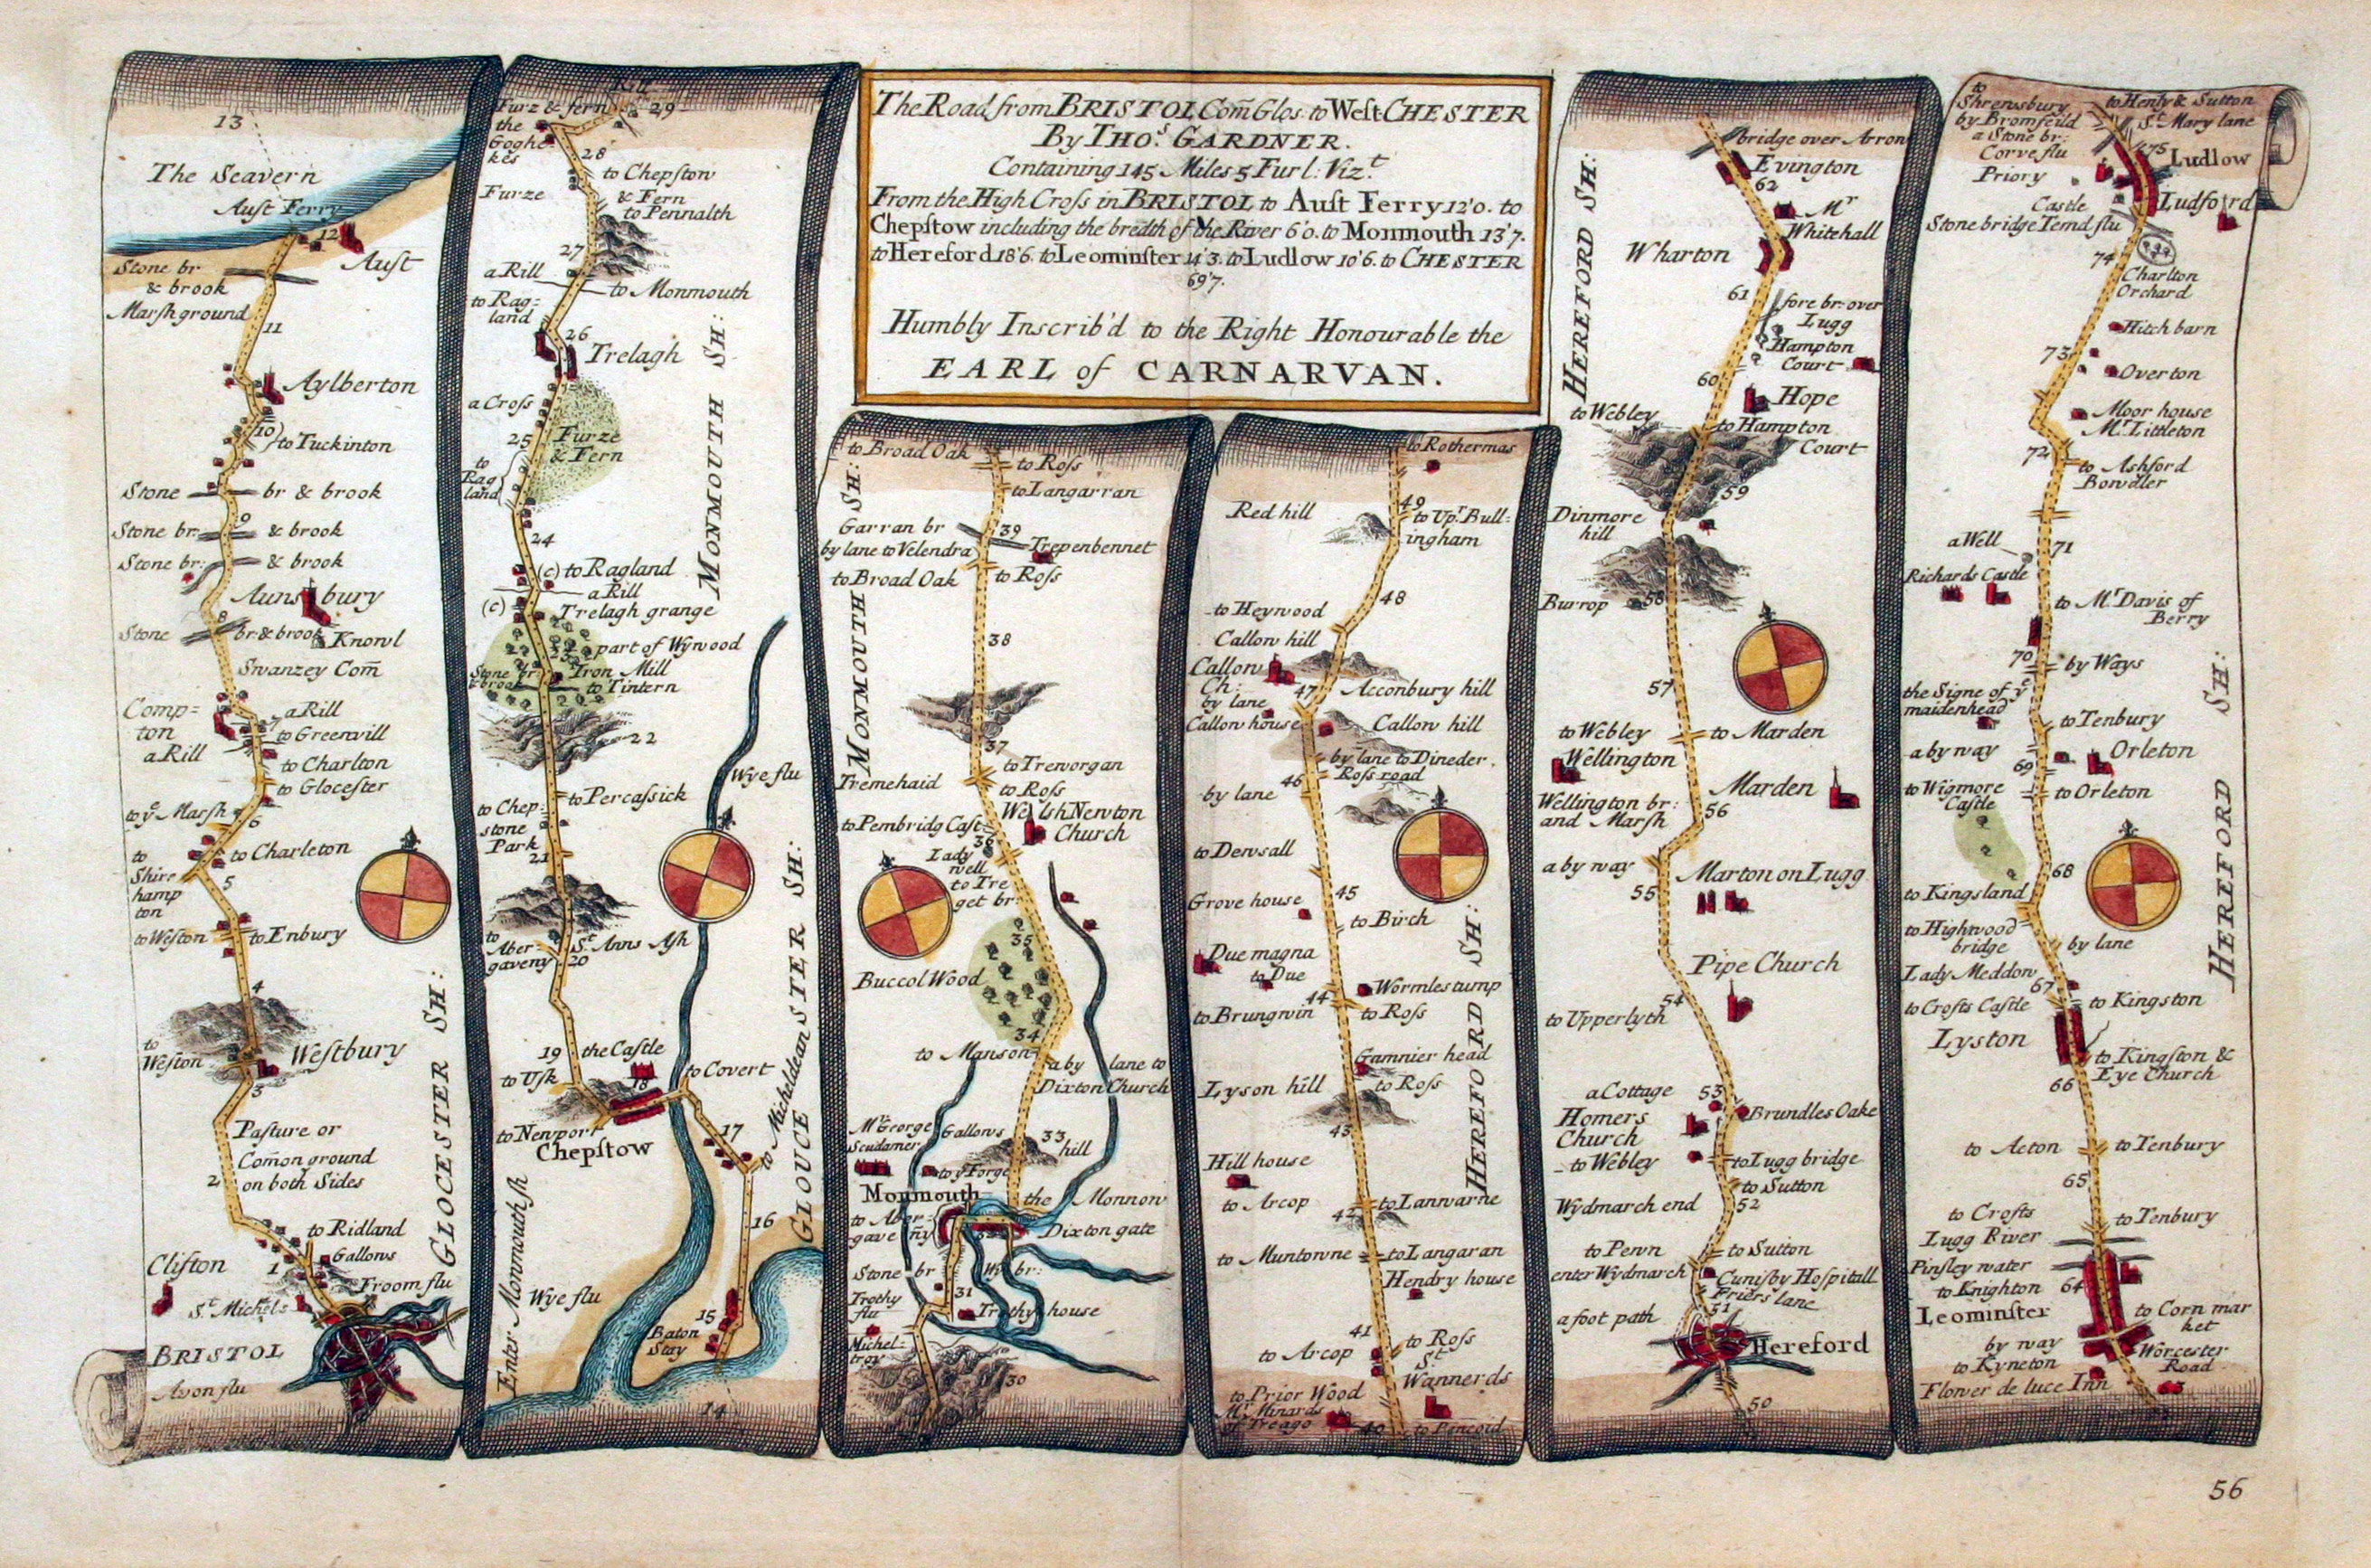 The Road from BRISTOL Com̄ Glos: to West-CHESTER
By THO.ˢ GARDNER.
Containing 145 Miles 5 Furl: Viz.ᵗ
From the High Cross in BRISTOL to Aust Ferry 12'0. to
Chepstow including the bredth of the River 6'0. to Monmouth 13'7.
to Hereford 18'6. to Leominster 14'3. to Ludlow 10'6. to CHESTER
69'7.
Humbly Inscrib'd to the Right Honourable the
EARL of CARNARVAN.
13
The Seavern
Aust Ferry
12
Aust
Stone br
& brook
Marsh ground
11
Aylberton
10
to Tuckinton
Stone br & brook
9
Stone br: & brook
Stone br: & brook
Aunsbury
8
Stone br: & brook
Knowl
Swanzey Com̄
Comp=
ton
a Rill
7
to Greenvill
a Rill
to Charlton
to Glocester
to yᵉ Marsh
6
to
Shire
hamp
ton
to Charleton
5
to Weston
to Enbury
4
to
Weston
Westbury
3
Pasture or
Com̄on ground
on both Sides
2
to Ridland
Gallows
Clifton
1
Froom flu
Sᵗ Michels
BRISTOL
Avon flu
GLOCESTER SH:
Rill
Furz & fern
29
the
Goghe=
kes
28
to Chepston
Furze
& Fern
to Pennalth
27
a Rill
to Monmouth
to Rag=
land
26
Trelagh
a Cross
25
Furze
& Fern
to
Rag
land
24
(c) to Ragland
a Rill
(c)
Trelagh grange
part of Wywood
Stone br
& brook
Iron Mill
to Tintern
22
MONMOUTH SH:
Wye flu
to Percassick
to Chep:
stone
Park
21
to
Aber=
gaveny
Sᵗ Anns Ash
20
19
the Castle
to Covert
to Usk
18
to Newport
Chepstow
17
to Micheldean
16
Wye flu
15
Baton
Stay
14
Enter Monmouthsh
GLOUCESTER SH:
to Broad Oak
to Ross
to Langarran
Garran br
39
by lane to Velendra
Trepenbennet
to Broad Oak
to Ross
38
MONMOUTH SH:
37
to Trevorgan
Tremehaid
to Ross
Welsh Newton
Church
to Pembridg Cast
36
Lady
well
to Tre
get br:
35
Buccol Wood
34
to Manson
a by lane to
Dixton Church
Mʳ George
Scudamer
Gallows
33
hill
to yᵉ Forge
Monmouth
the Monnow
to Aber=
gaveñy
32
Dixton gate
Stone br
Wy br:
Trothy
flu
31
Trothy house
Michel=
troy
30
to Rothermas
49
Red hill
to Upʳ Bull=
ingham
48
to Heywood
Callow hill
Callow
Ch:
47
Acconbury hill
by lane
Callow house
Callow hill
by lane to Dineder
46
Ross road
by lane
to Dewsall
45
Grove house
to Birch
Due magna
to Due
Wormlestump
44
to Brungwin
to Ross
Gamnier head
Lyson hill
to Ross
43
Hill house
to Arcop
to Lanwarne
42
to Muntowne
to Langaran
Hendry house
41
to Ross
to Arcop
Sᵗ
Wannerds
to Prior Wood
Mʳ Minards
of Treago
40
to Pincoid
HEREFORD SH:
bridge over Arron
Evington
62
Mʳ
Whitehall
Wharton
61
fore br: over
Lugg
Hampton
Court
60
Hope
to Webley
to Hampton
Court
59
Dinmore
hill
Burrop
58
HEREFORD SH:
57
to Webley
to Marden
Wellington
Marden
Wellington br:
and Marsh
56
a by way
Marton on Lugg
55
Pipe Church
54
to Upperlyth
a Cottage
53
Brundles Oake
Homers
Church
to Webley
to Lugg bridge
to Sutton
Wydmarch end
52
to Penn
to Sutton
enter Wydmarch
Cunisby Hospitall
Friers lane
51
a foot path
Hereford
50
to
Shrewsbury
by Bromfeild
a Stone br:
Corve flu
to Henly & Sutton
Sᵗ Mary lane
75
Ludlow
Priory
Castle
Ludford
Stone bridge Temd flu
74
Charlton
Orchard
Hitch barn
73
Overton
Moor house
Mʳ Littleton
72
to Ashford
Bowdler
a Well
71
Richards Castle
to Mʳ Davis of
Berry
70
by Ways
the Signe of yᵉ
maidenhead
to Tenbury
a by way
Orleton
69
to Wigmore
Castle
to Orleton
68
to Kingsland
to Highwood
bridge
by lane
Lady Meddow
67
to Crofts Castle
to Kingston
Lyston
to Kingston &
Eye Church
66
to Acton
to Tenbury
65
to Crofts
to Tenbury
Lugg River
Pinsley water
to Knighton
64
Leominster
to Corn mar
ket
by way
to Kyneton
Worcester
Road
Flower de luce Inn
63
HEREFORD SH:
56